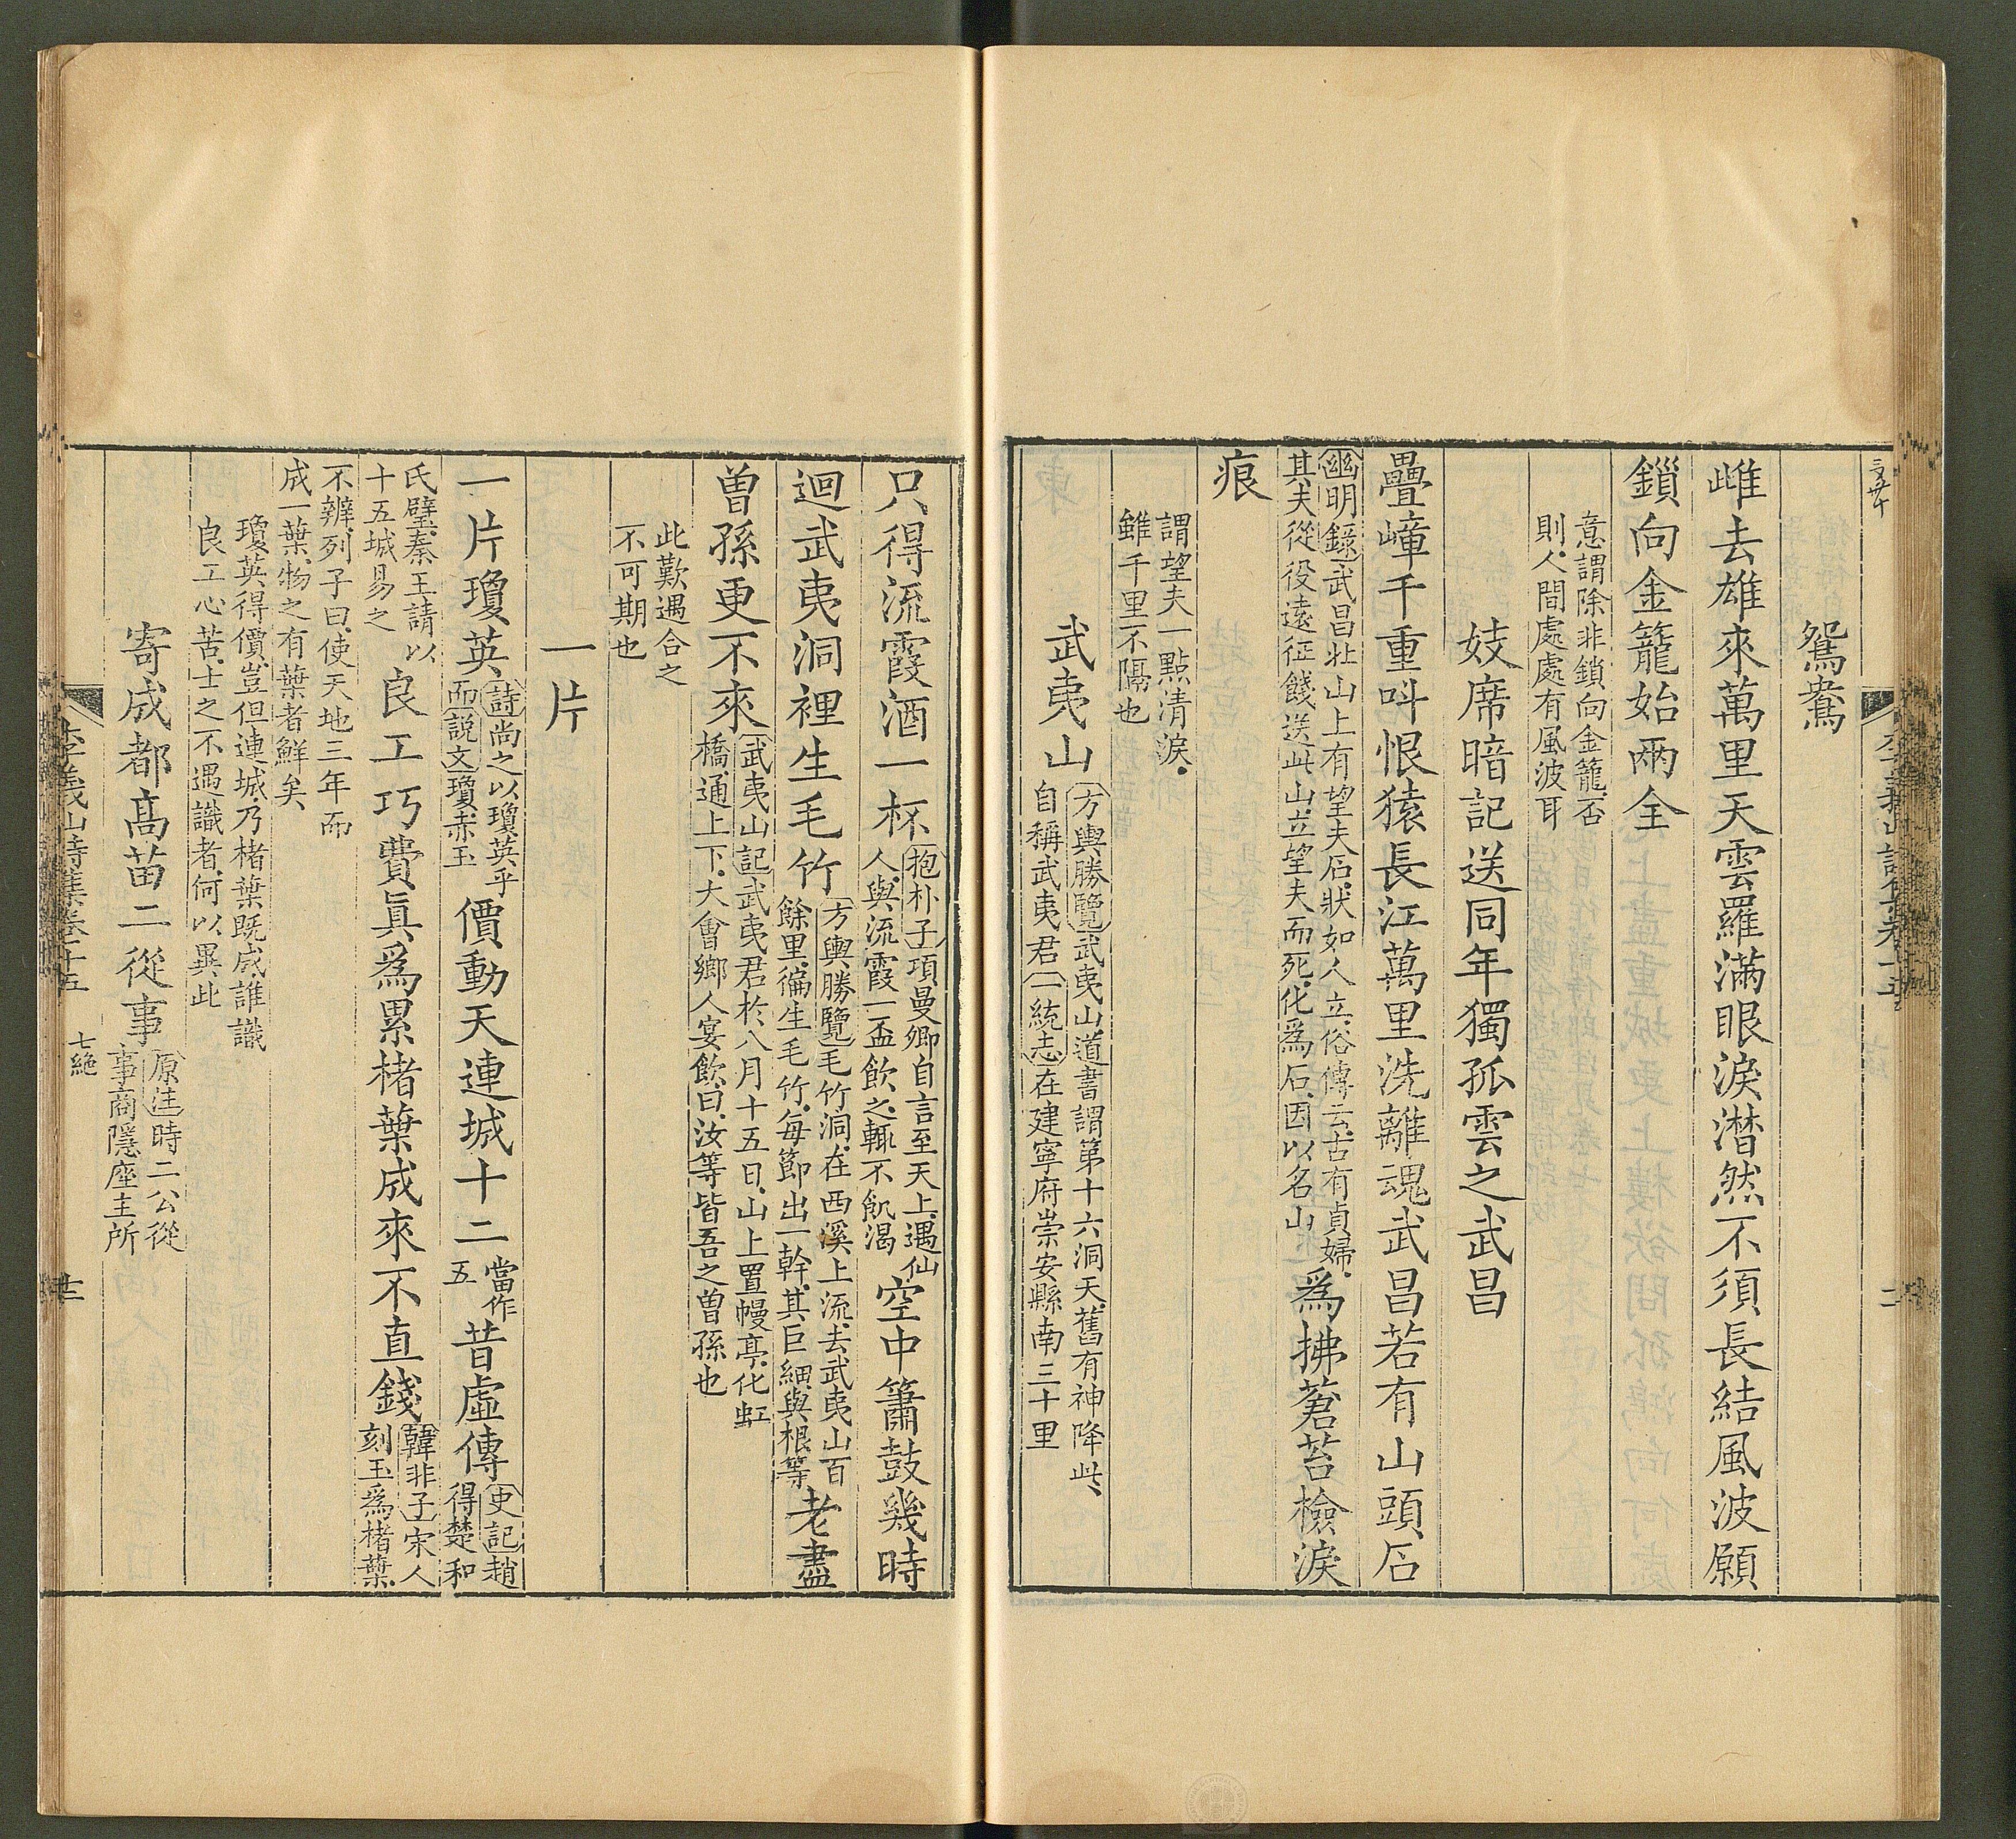 鴛鴦
雌去雄來萬里天雲羅滿眼淚潸然不須長結風波願
鎖向金籠始兩全
意謂除非鎖向金籠否
則人間處處有風波耳
妓席暗記送同年獨孤雲之武昌
疊嶂千重叫恨猿長江萬里洗離魂武昌若有山頭石
幽明錄武昌北山上有望夫石狀如人立俗傳云古有貞婦
其夫從役遠征餞送此山立望夫而死化爲石因以名山
爲拂蒼苔檢淚
痕
謂望夫一點清淚
雖千里不隔也
武夷山
方輿勝覽武夷山道書謂第十六洞天舊有神降此
自稱武夷君一統志在建寧府崇安縣南三十里
只得流霞酒一杯
抱朴子項曼卿自言至天上遇仙
人與流霞一盃飲之輒不飢渴
空中簫鼓幾時
迴武夷洞裡生毛竹
方輿勝覽毛竹洞在西溪上流去武夷山百
餘里徧生毛竹每節出一幹其巨細與根等
老盡
曽孫更不來
武夷山記武夷君於八月十五日山上置幔亭化虹
橋通上下大會鄉人宴飲曰汝等皆吾之曽孫也
此歎遇合之
不可期也
一片
一片瓊英
詩尚之以瓊英乎
而說文瓊赤玉
價動天連城十二
當作
五
昔虛傳
史記趙
得楚和
氏璧秦王請以
十五城易之
良工巧費眞爲累楮葉成來不直錢
韓非子宋人
刻玉爲楮葉
不辨列子曰使天地三年而
成一葉物之有葉者鮮矣
瓊英得價豈但連城乃楮葉既成誰識
良工心苦士之不遇識者何以異此
寄成都高苗二從事
原注時二公從
事商隱座主所
李義山詩集卷十五
七絶